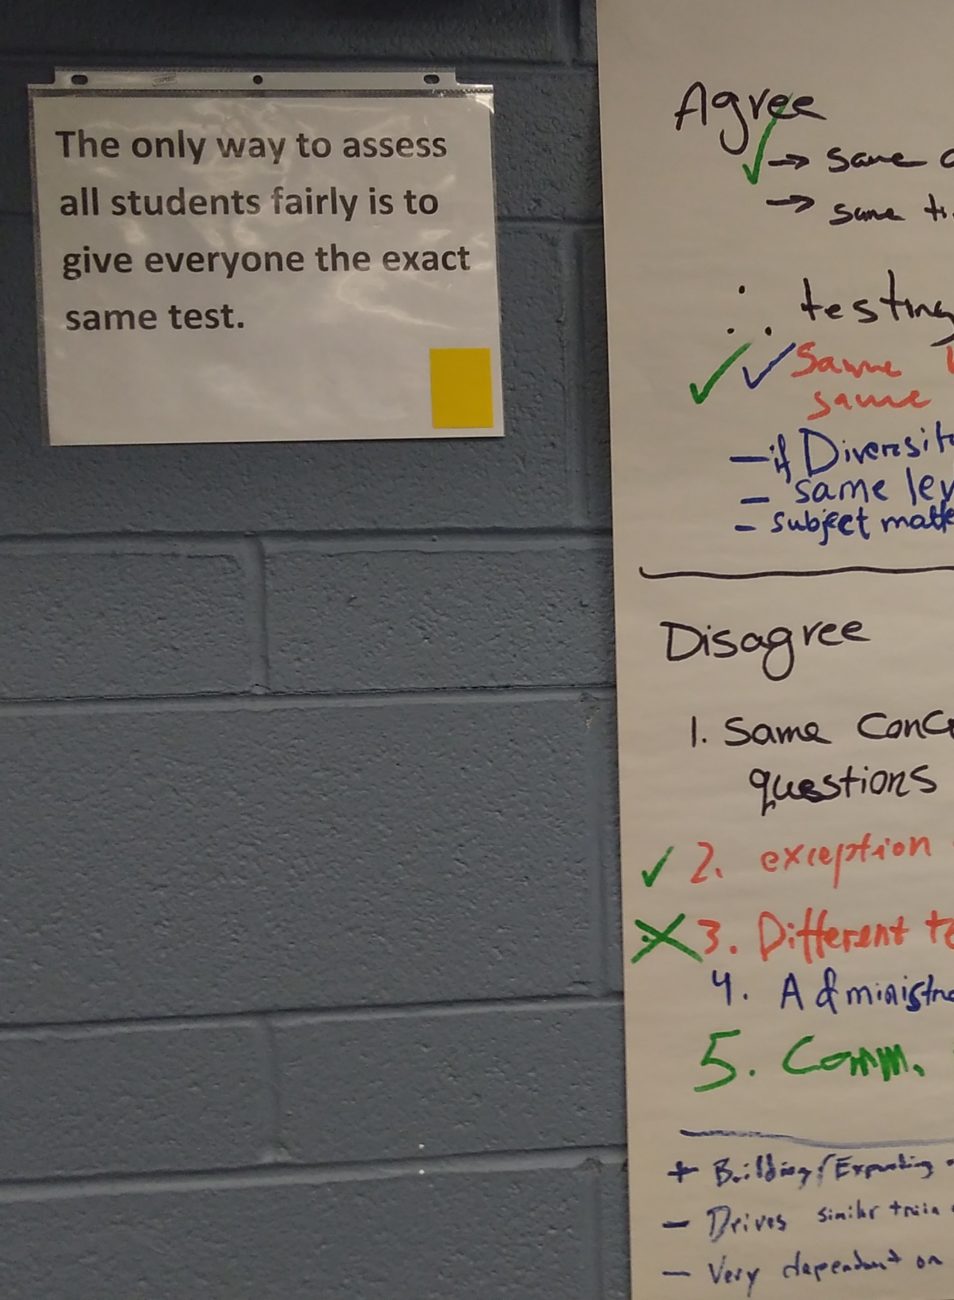 The only way to assess
all students fairly is to
give everyone the exact
same test.
Agree
→ same
→ same
∴ testing
same
same
- if
- same
- subject
Disagree
1. Same
questions
2. exception
3. Different
4.
5. Comm.
+ Building/Expanding
- Drives similar train
- Very dependent on